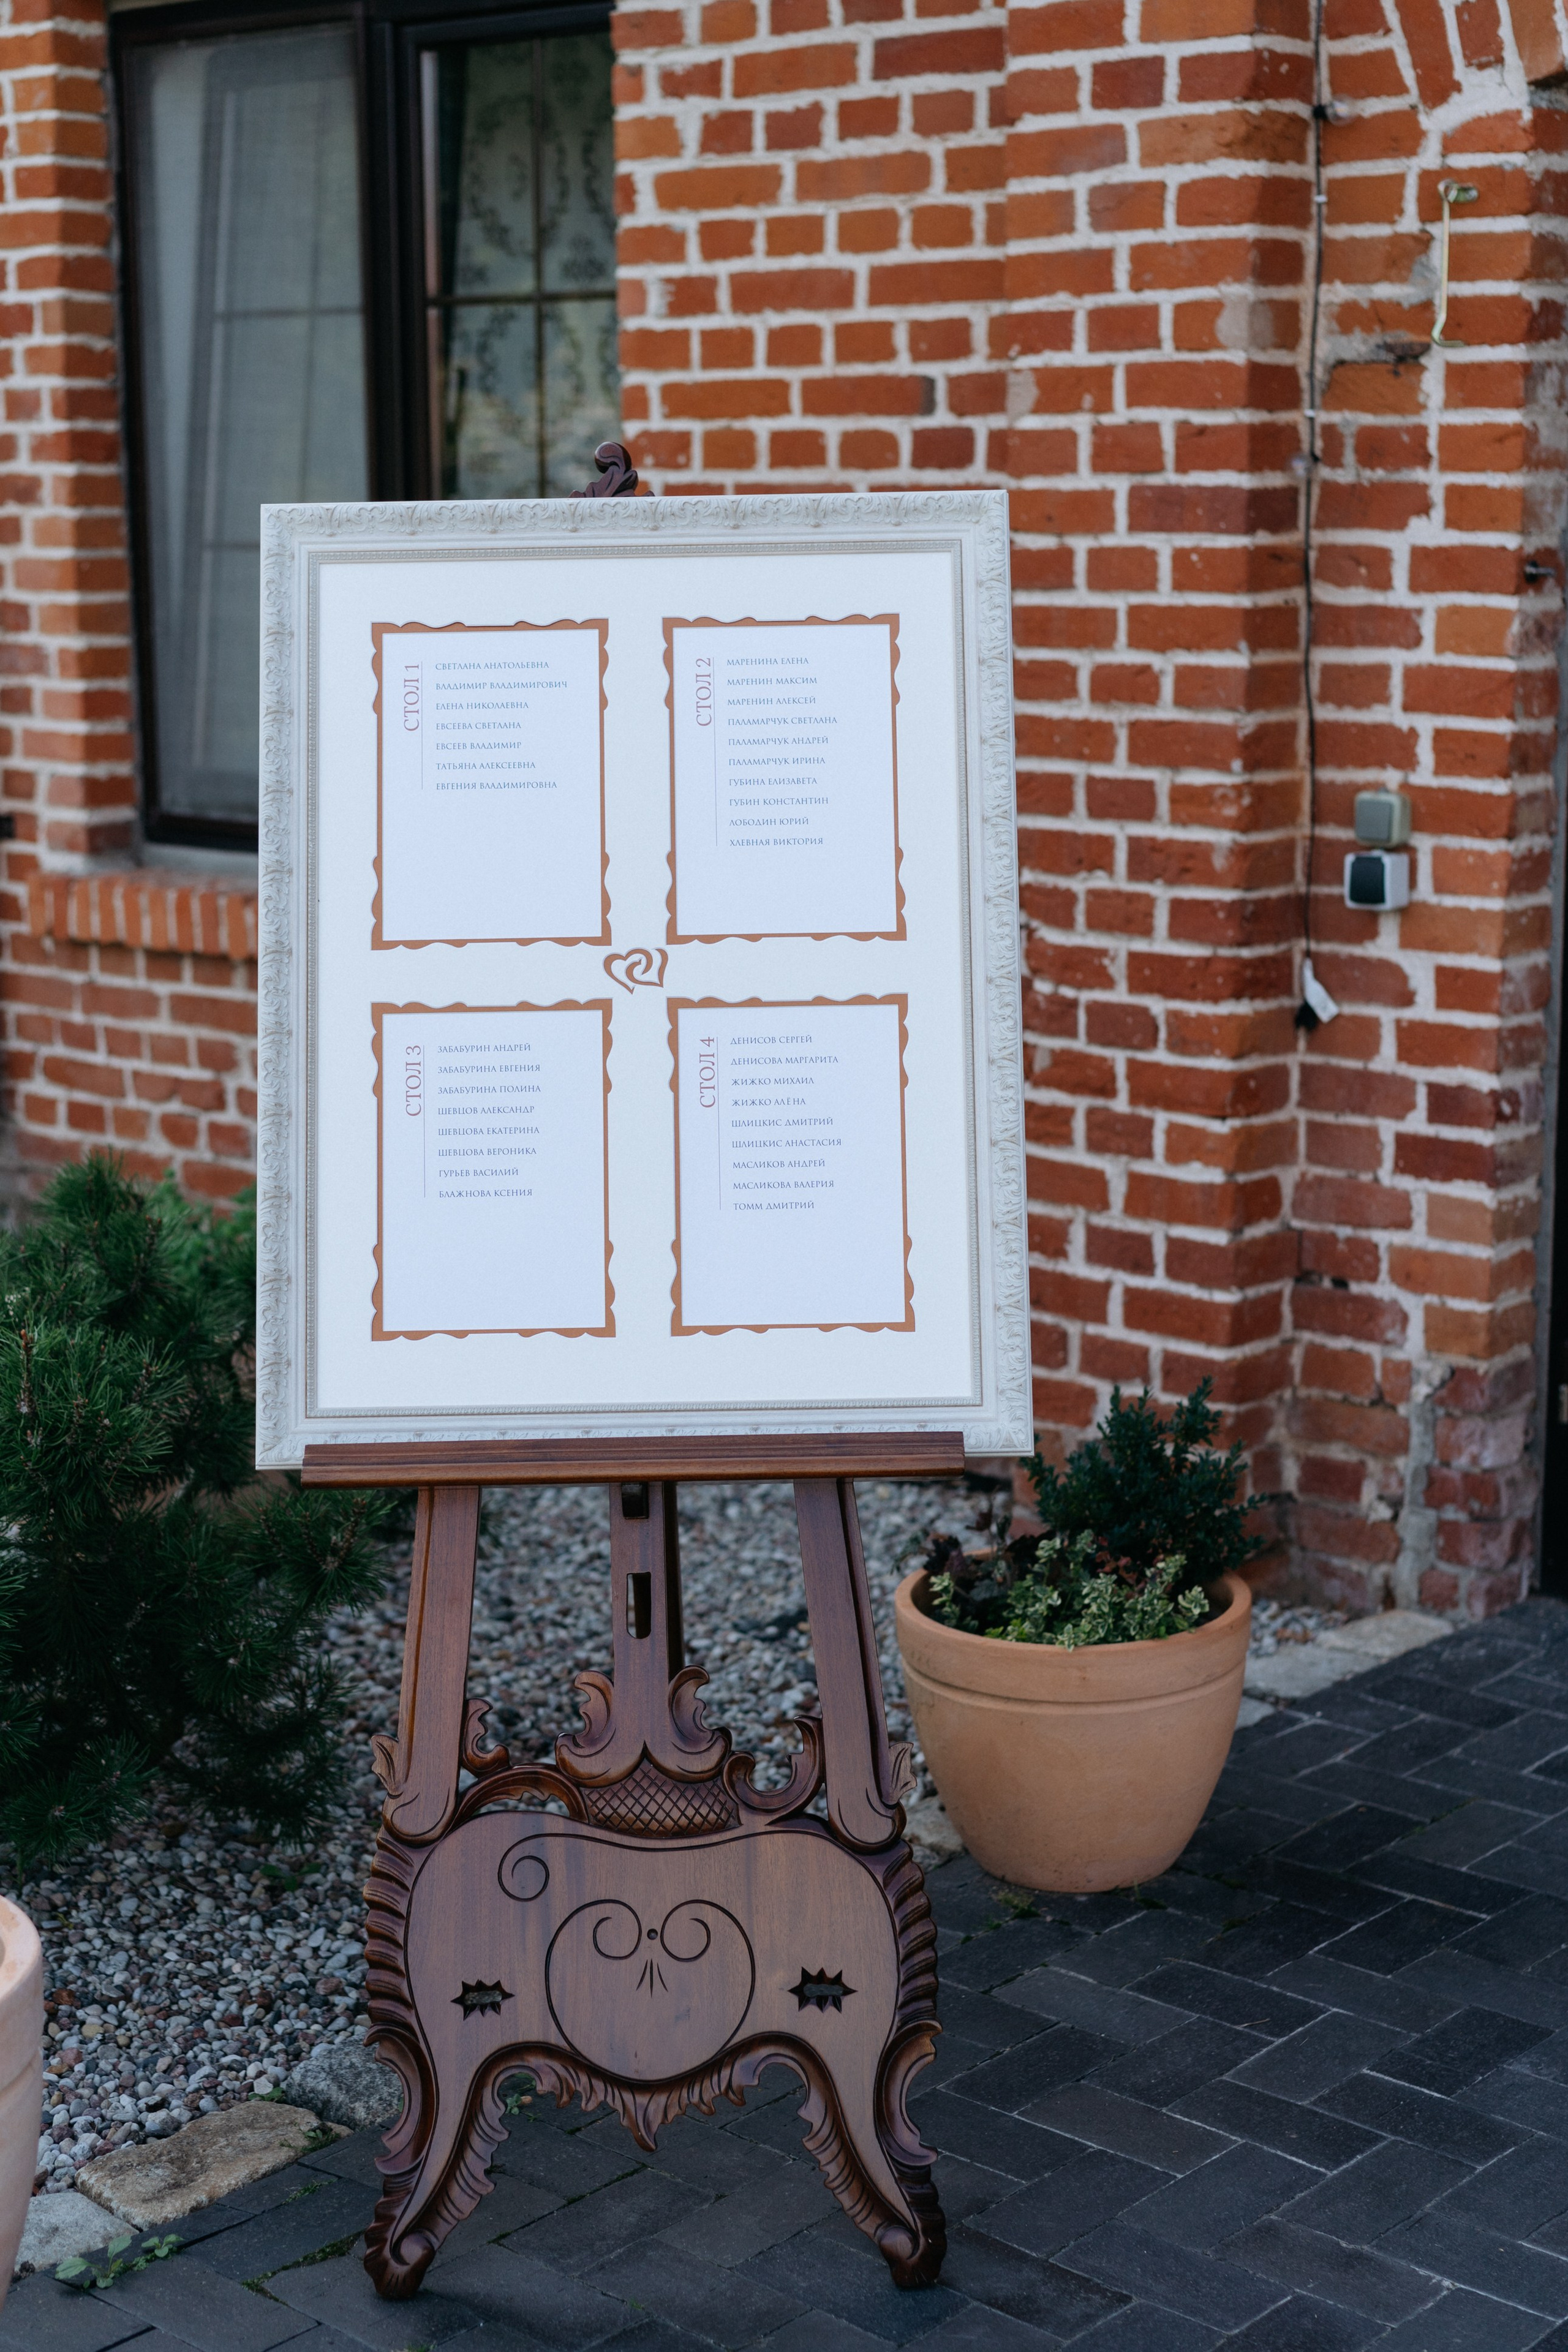 СТОЛ 1
СВЕТЛАНА АНАТОЛЬЕВНА
ВЛАДИМИР ВЛАДИМИРОВИЧ
ЕЛЕНА НИКОЛАЕВНА
ЕВСЕЕВА СВЕТЛАНА
ЕВСЕЕВ ВЛАДИМИР
ТАТЬЯНА АЛЕКСЕЕВНА
ЕВГЕНИЯ ВЛАДИМИРОВНА
СТОЛ 2
МАРЕНИНА ЕЛЕНА
МАРЕНИН МАКСИМ
МАРЕНИН АЛЕКСЕЙ
ПАЛАМАРЧУК СВЕТЛАНА
ПАЛАМАРЧУК АНДРЕЙ
ПАЛАМАРЧУК ИРИНА
ГУБИНА ЕЛИЗАВЕТА
ГУБИН КОНСТАНТИН
ЛОБОДИН ЮРИЙ
ХЛЕВНАЯ ВИКТОРИЯ
СТОЛ 3
ЗАБАБУРИН АНДРЕЙ
ЗАБАБУРИНА ЕВГЕНИЯ
ЗАБАБУРИНА ПОЛИНА
ШЕВЦОВ АЛЕКСАНДР
ШЕВЦОВА ЕКАТЕРИНА
ШЕВЦОВА ВЕРОНИКА
ГУРЬЕВ ВАСИЛИЙ
БЛАЖНОВА КСЕНИЯ
СТОЛ 4
ДЕНИСОВ СЕРГЕЙ
ДЕНИСОВА МАРГАРИТА
ЖИЖКО МИХАИЛ
ЖИЖКО АЛЁНА
ШЛИЦКИС ДМИТРИЙ
ШЛИЦКИС АНАСТАСИЯ
МАСЛИКОВ АНДРЕЙ
МАСЛИКОВА ВАЛЕРИЯ
ТОММ ДМИТРИЙ